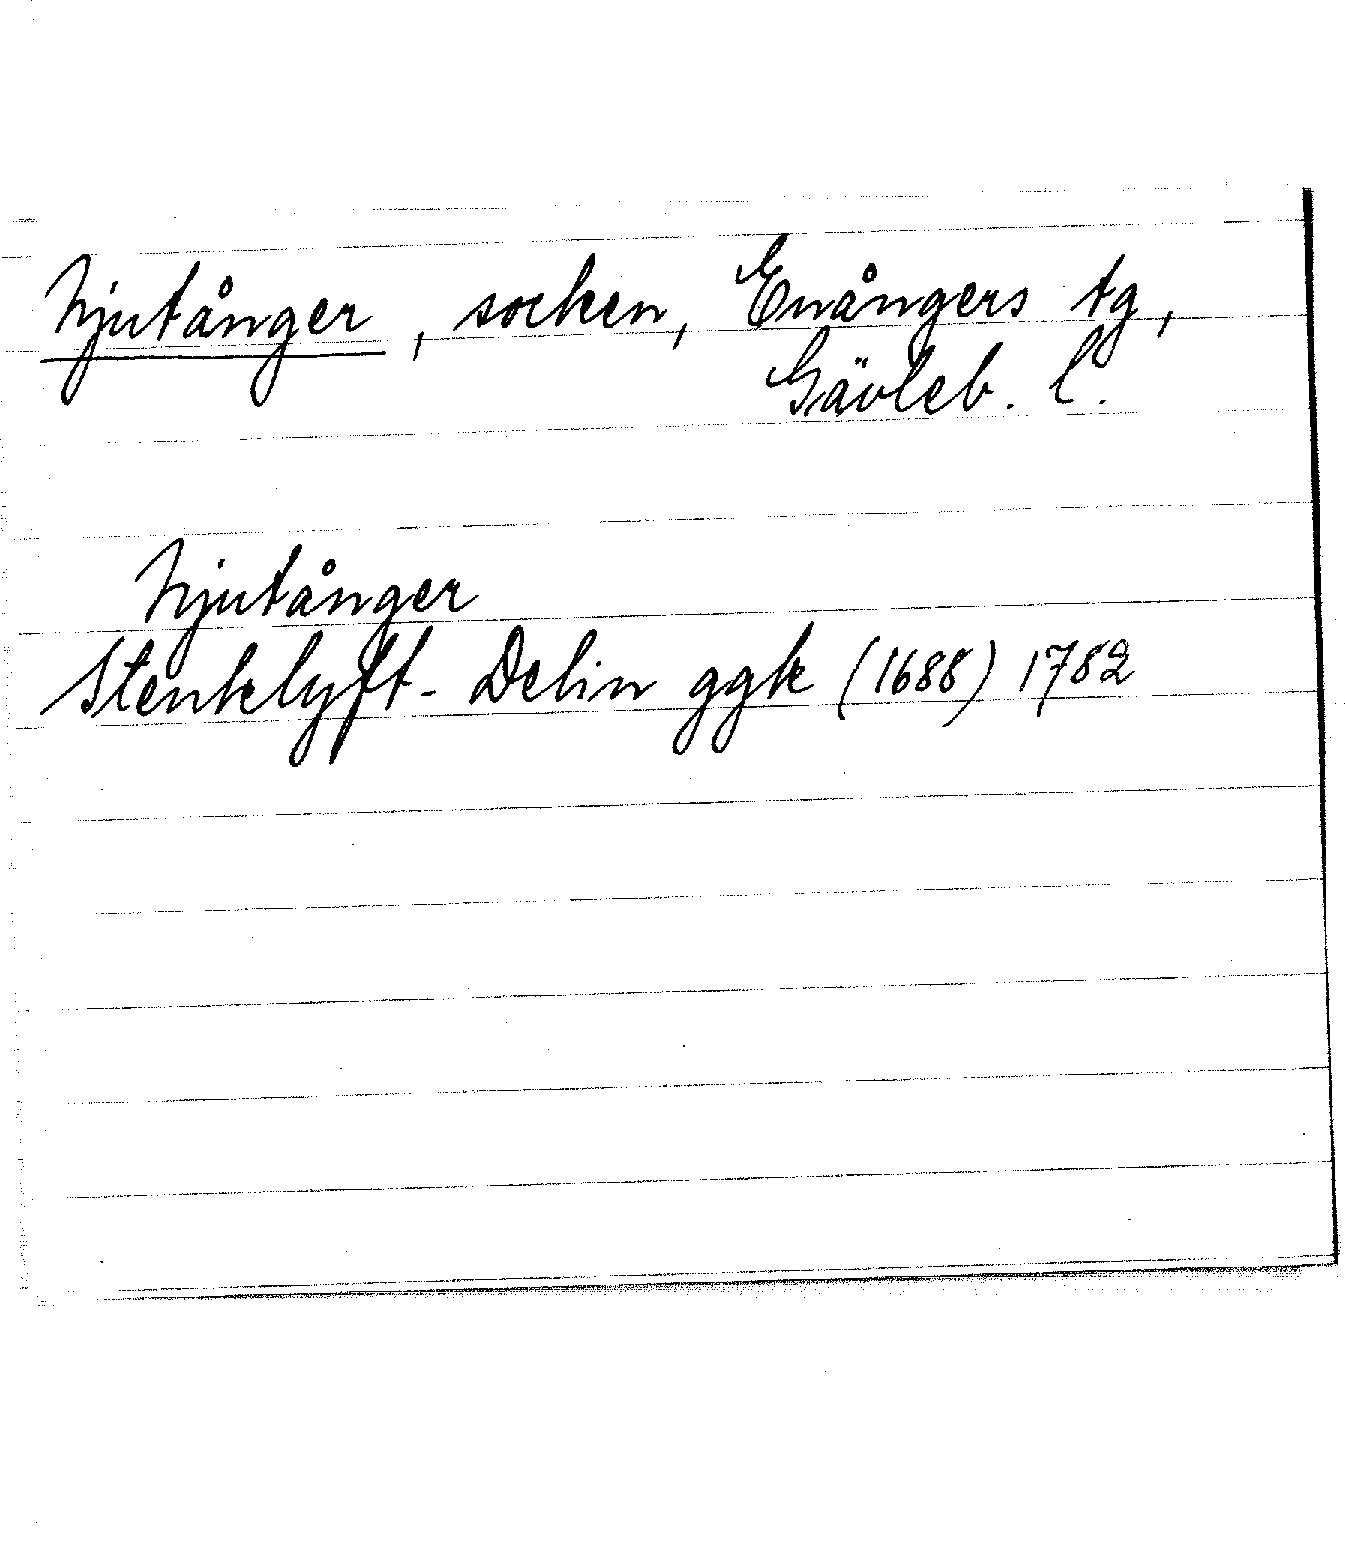 Njutånger, socken, Enångers tg,
Gävleb. l.
Njutånger
Stenklyft- Delin ggk (1688) 1782